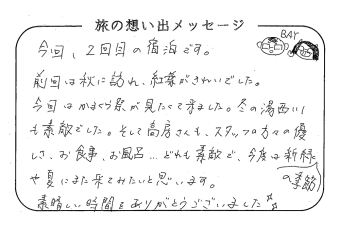 旅の想い出メッセージ
BAY
今回、2回目の宿泊です。
前回は秋に訪れ、紅葉がきれいでした。
今回はかまくら祭が見たくて来ました。冬の湯西川
も素敵でした。そして高房さんも、スタッフの方々の優
しさ、お食事、お風呂…どれも素敵で、今度は新緑
の季節
や夏にまた来てみたいと思います。
素晴しい時間をありがとうございました